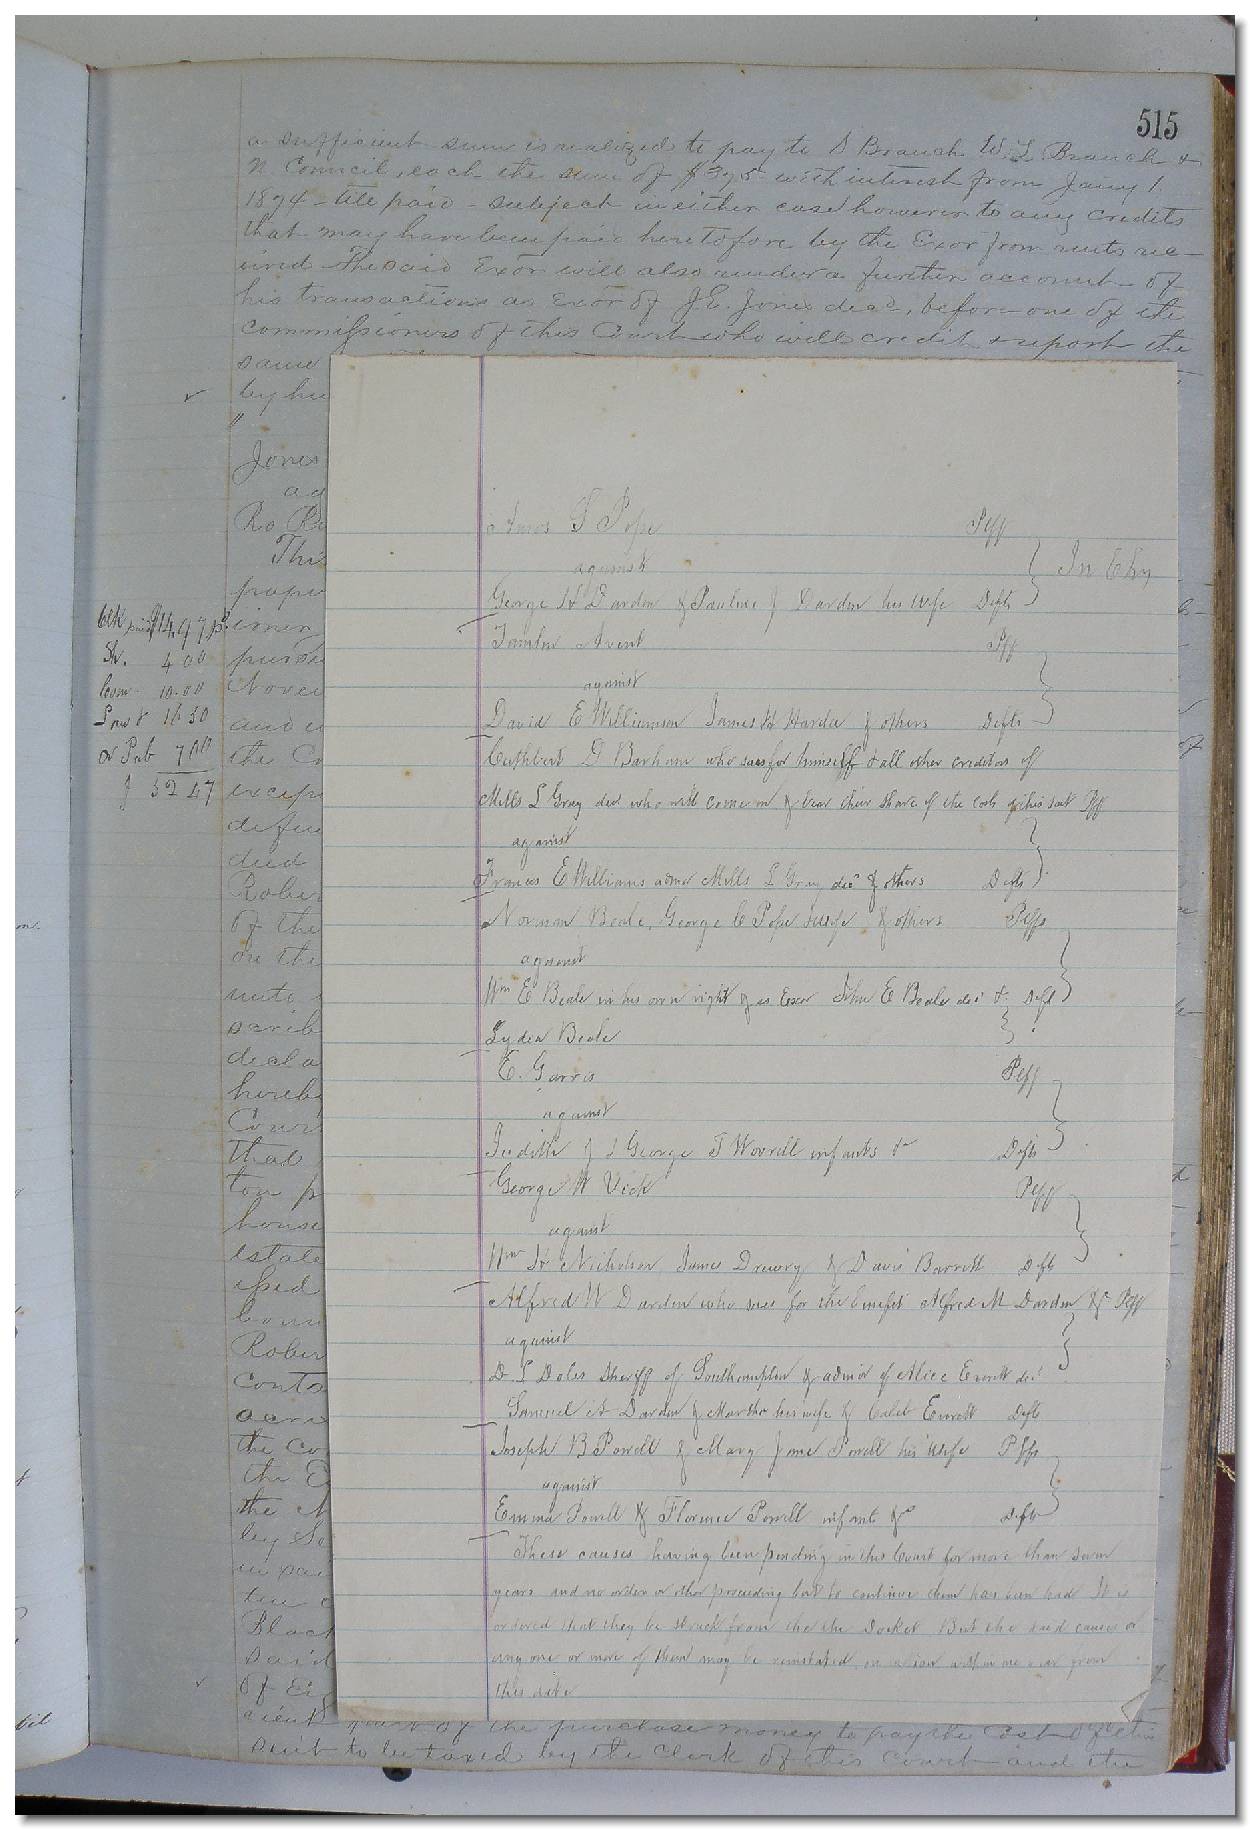 515
a sufficient sum is realized to pay to S Branch W. L Branch &
N Council, each the sum of $395 with interest from Jany 1
1894 till paid - subject in either case however to any credits
that may have been paid heretofore by the Exor from rents rec-
eived The said Exor will also render a further account of
his transactions as Exor of J. E. Jones decd, before one of the
commissioners of this Court who will credit & report the
same
by hi
"
Jones
ag
Ro Ri
This
pape
Clk paid $14.97
Sh. 4 00
Com 10.00
16 50
Pub 7 00
$ 52 47
Nove
and
the Co
excep
defen
deed
Rober
of the
on the
scrib
decla
hereb
Cour
that
ton p
house
estate
Rober
acre
the Co
the E
the
by
Black
said
of
Amos T Pope Plff
against
In Chy
George H Darden & Pauline J Darden his wife Defts
Tamlin Avent Plff
against
David E Williamson James H Hardee & others Defts
Cuthbert D Barham who sues for himself & all other creditors of
Mills L Gray decd who will come in & bear their share of the costs of this suit Plff
against
Frances E Williams admr Mills L Gray decd & others Defts
Norman Beale, George C Pope & wife & others Plffs
against
Wm E Beale in his own right & as Exor John E Beale decd & Deft
Lydia Beale
E. Garris Plff
against
Judith J & George T Worrell infants & Defts
George W Vick Plff
against
Wm H Nicholson James Drewry & David Barrett Defts
Alfred W Darden who sues for the benefit Alfred M Darden &c Plff
against
D. S Doles Sheriff of Southampton & admor of Alice Everett decd
Samuel A Darden & Martha his wife & Caleb Everett Defts
Joseph B Powell & Mary Jane Powell his wife Plffs
against
Emma Powell & Florence Powell infants &c Defts
These causes having been pending in this Court for more than seven
years and no order or other proceeding but to continue them has been had It is
ordered that they be struck from the the Docket But the said causes or
any one or more of them may be reinstated on motion within one year from
this date
cient part of the purchase money to pay the cost of this
suit to be taxed by the Clerk of this Court and the